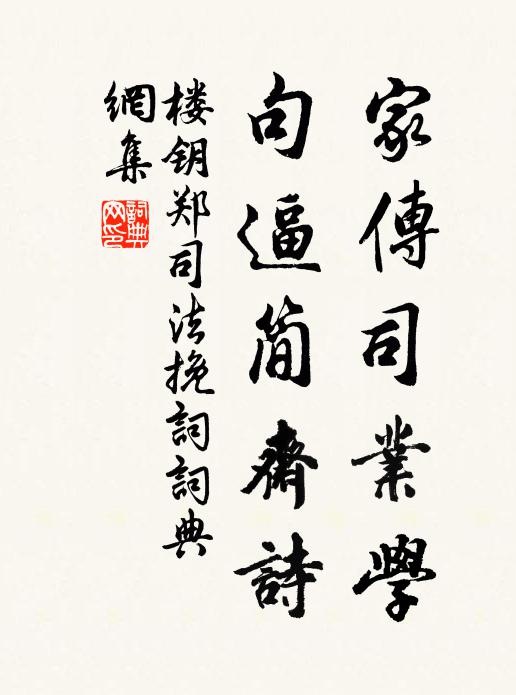 家傳司業學
句逼简齋詩
楼钥郑司法挽詞詞典
網集
詞典網印